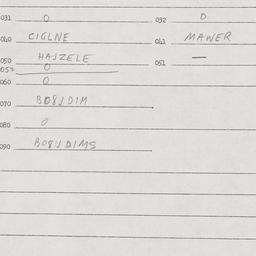 031 0 032 0
040 CIGLNE 041 MAWER
050 HAJZELE 051 —
057 0
060 0
070 BOBUDIM
080 0
090 BOBUDIMS